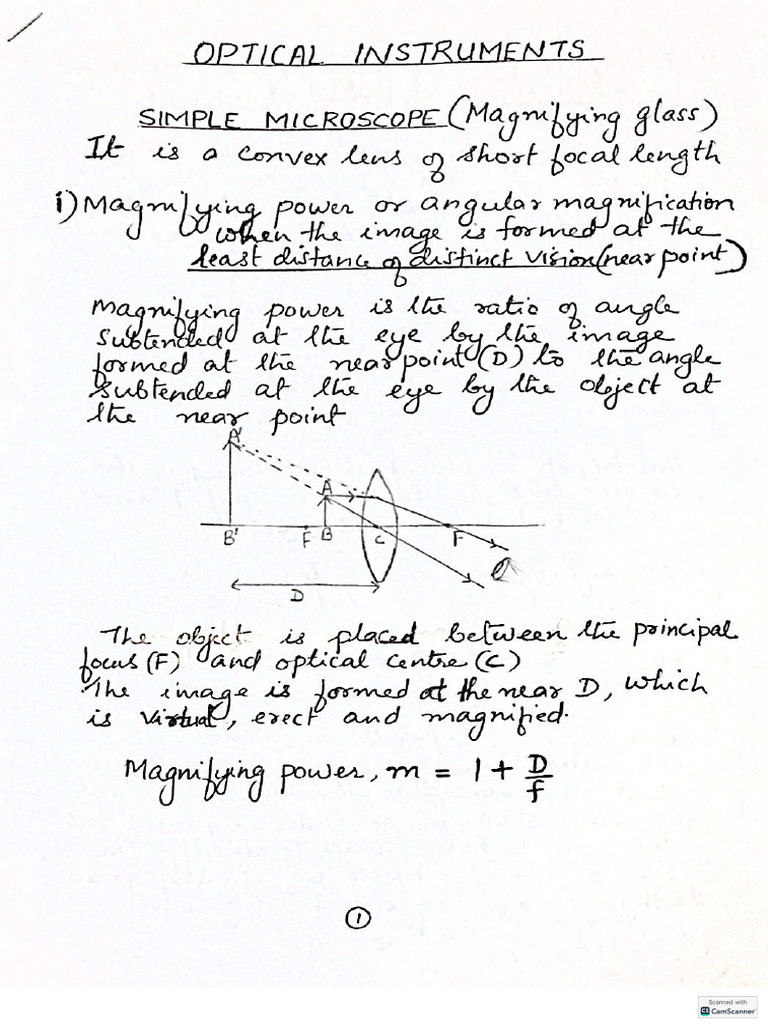 OPTICAL INSTRUMENTS
SIMPLE MICROSCOPE (Magnifying glass)
It is a convex lens of short focal length
i) Magnifying power or angular magnification
when the image is formed at the
least distance of distinct vision (near point)
Magnifying power is the ratio of angle
subtended at the eye by the image
formed at the near point (D) to the angle
subtended at the eye by the object at
the near point
A'
A
B' F B C F
D
The object is placed between the principal
focus (F) and optical centre (C)
The image is formed at the near D, which
is virtual, erect and magnified.
Magnifying power, m = 1 + D/f
1
Scanned with
CS CamScanner